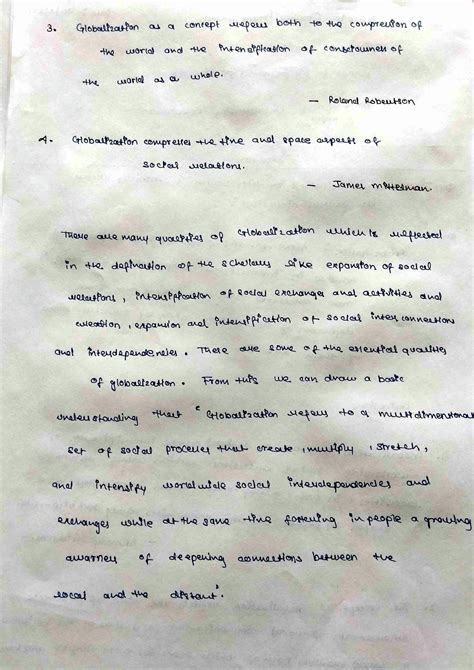 3. Globalization as a concept refers both to the compression of
the world and the intensification of consciousness of
the world as a whole.
— Roland Robertson
4. Globalization compresses the time and space aspects of
social relations.
— James Mittleman.
There are many qualities of Globalization which is reflected
in the defination of the scholars like expansion of social
relations, intensification of social exchanges and activities and
creation, expansion and intensification of social interconnections
and interdependencies. These are some of the essential qualities
of globalization. From this we can draw a basic
understanding that "Globalization refers to a multidimentional
set of social processes that create, multiply, stretch,
and intensify worldwide social interdependencies and
exchanges while at the same time fostering in people a growing
awarness of deepening connections between the
local and the distant".